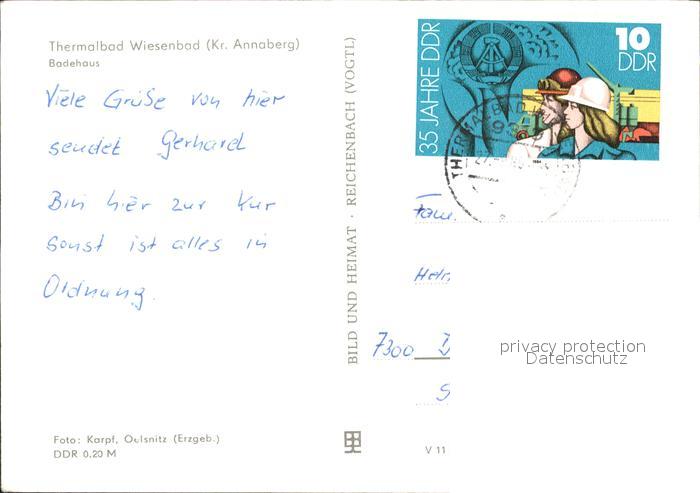 Thermalbad Wiesenbad (Kr. Annaberg)
Badehaus
Viele Grüße von hier
sendet Gerhard
Bin hier zur Kur
sonst ist alles in
Ordnung.
Foto: Karpf, Oelsnitz (Erzgeb.)
DDR 0,20 M
BILD UND HEIMAT · REICHENBACH (VOGTL)
V 11
35 JAHRE DDR
10
DDR
Fam.
7300
privacy protection
Datenschutz